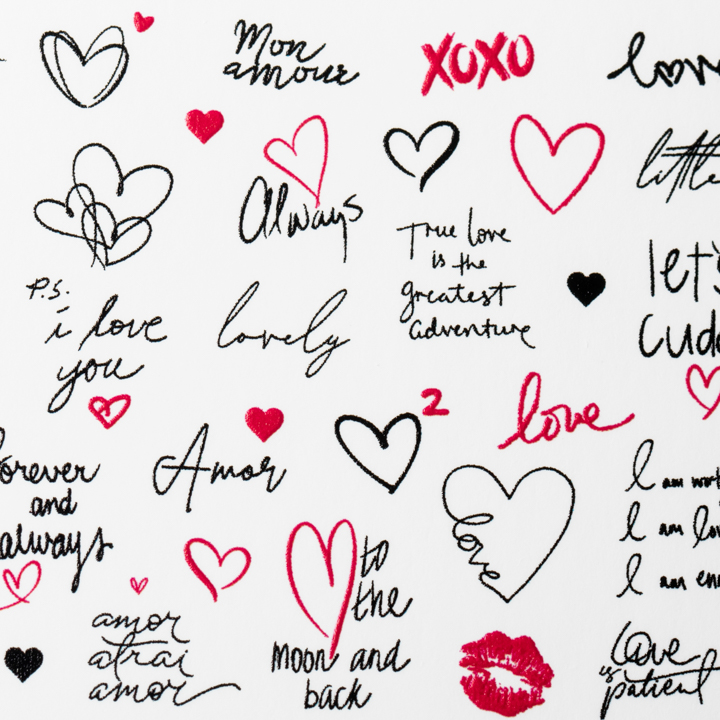 Mon
amour
XOXO
love
Always
little
True love
is the
greatest
adventure
let's
P.S.
i love
you
lovely
2
love
forever
and
always
Amor
love
I am
I am
I am
to
the
moon and
back
amor
atrai
amor
Love
is
patient